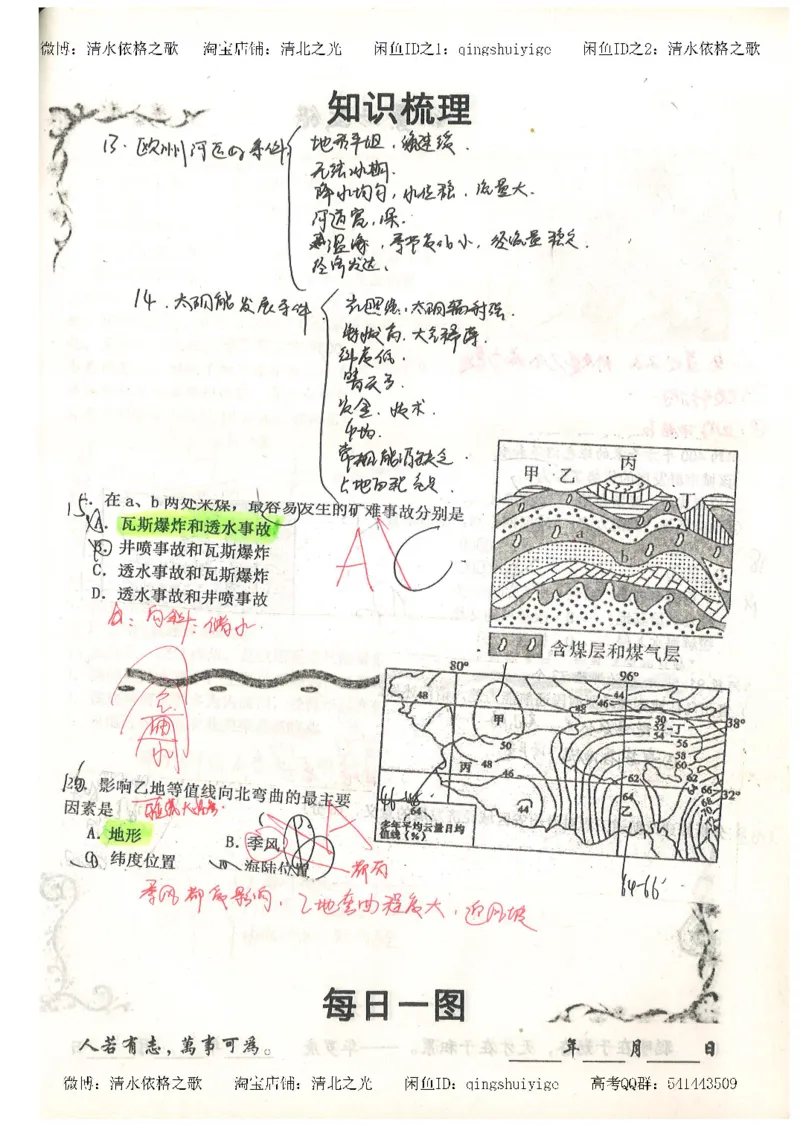 微博：清水依格之歌 淘宝店铺：清北之光 闲鱼ID之1：qingshuiyige 闲鱼ID之2：清水依格之歌
知识梳理
13. 欧洲河运的条件
地形平坦，流速缓.
无结冰期.
降水均匀，水位稳，流量大.
河道宽，深.
温海，季节变化小，径流量稳定.
经济发达.
14. 太阳能发展条件
光照强，太阳辐射强.
海拔高，大气稀薄.
纬度低.
晴天多.
资金、技术.
市场.
常规能源缺乏
土地面积
15.
在a、b两处采煤，最容易发生的矿难事故分别是
A. 瓦斯爆炸和透水事故
B. 井喷事故和瓦斯爆炸
C. 透水事故和瓦斯爆炸
D. 透水事故和井喷事故
A
C
向斜：储水.
甲 乙 丙 丁
a
b
含煤层和煤气层
80° 96°
38°
32°
48 甲 44 46 48 50 52 54 丁 56 58 60
50 丙 48 46 62 62 64 66 68 70
44 64 乙
多年平均云量日均值线（%）
64-66
影响乙地等值线向北弯曲的最主要
因素是
A. 地形
B. 季风
纬度位置
海陆位置
A
都有
季风都有影响，乙地弯曲程度大，迎风坡
每日一图
人若有志，萬事可為。
年 月 日
微博：清水依格之歌 淘宝店铺：清北之光 闲鱼ID：qingshuiyige 高考QQ群：541443509